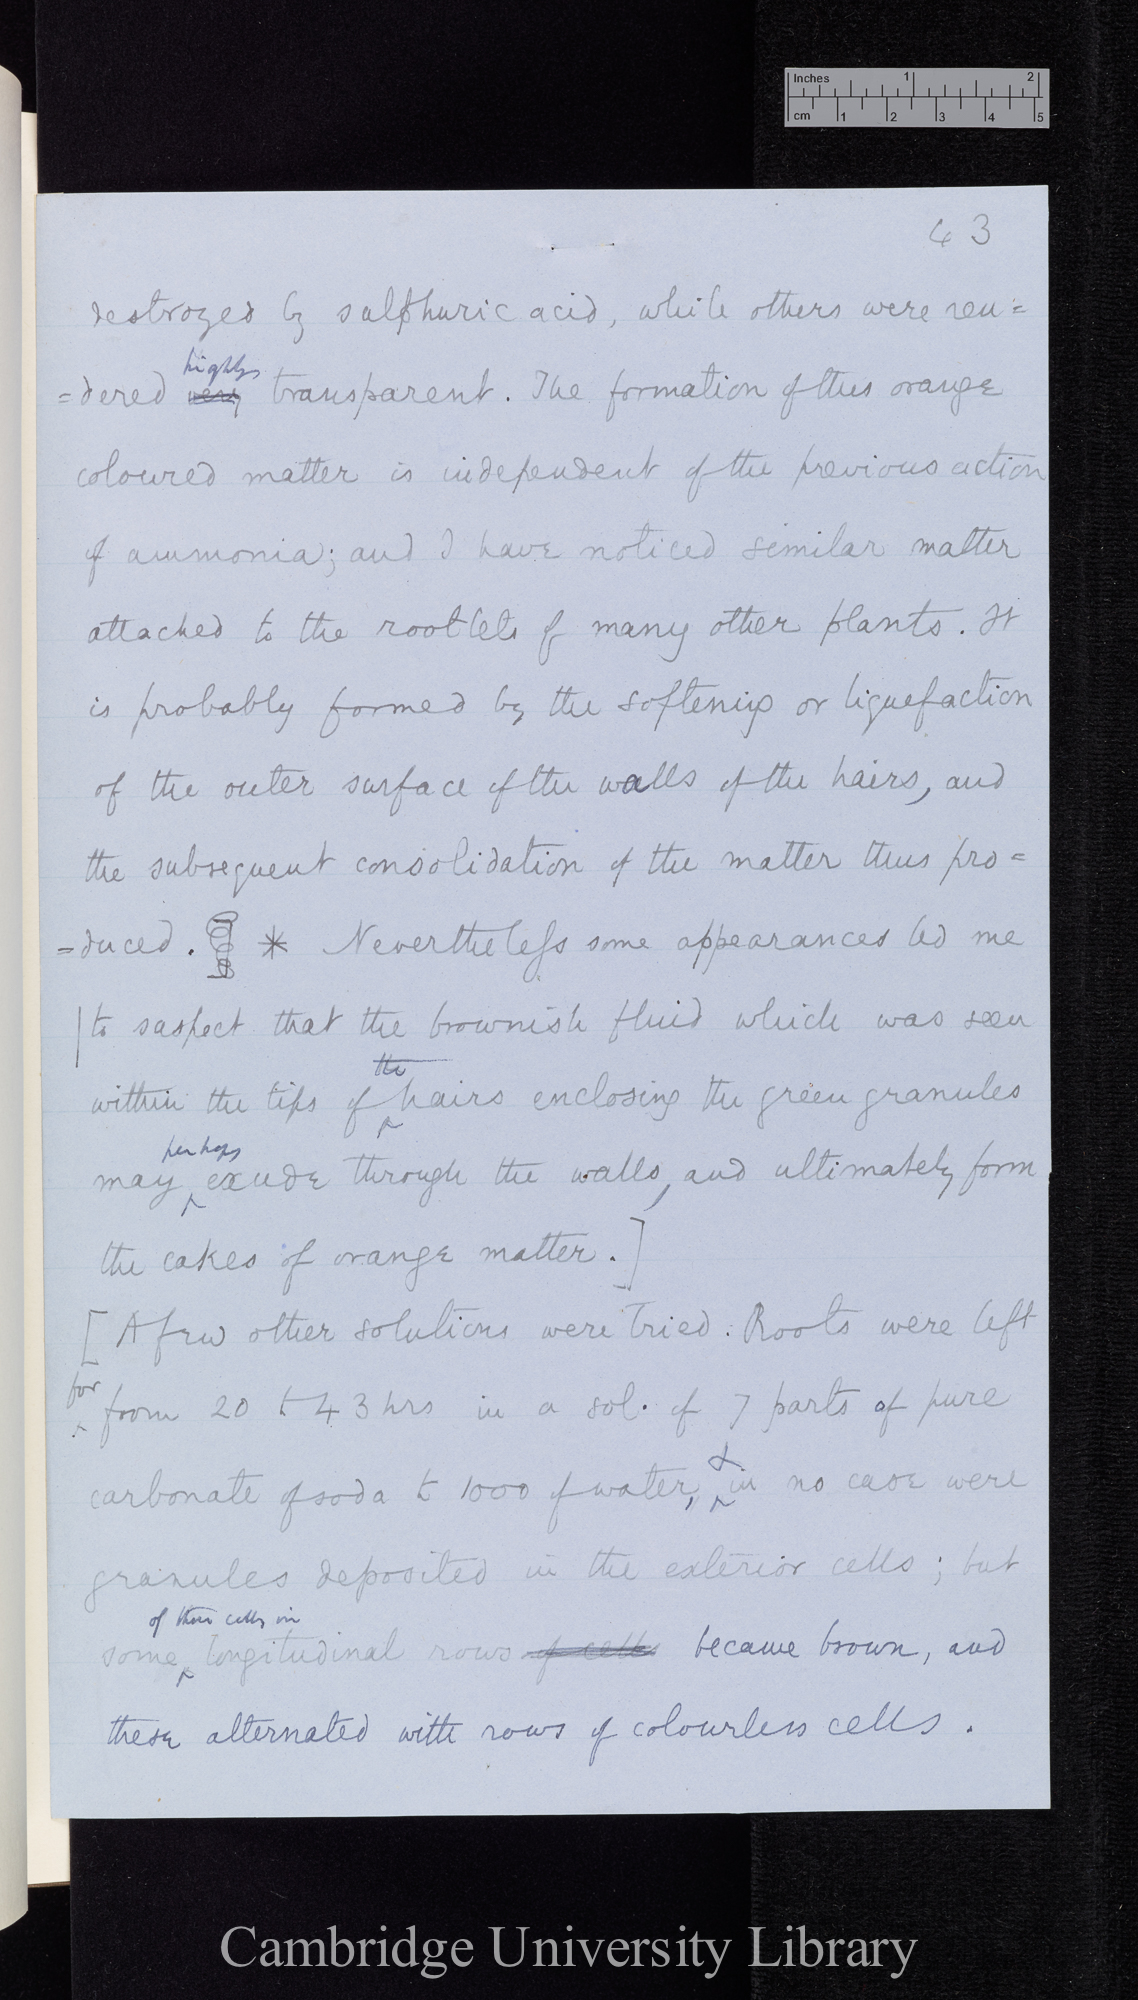 Inches 1 2
cm 1 2 3 4 5
43
destroyed by sulphuric acid, while others were ren=
highly
=dered very transparent. The formation of this orange
coloured matter is independent of the previous action
of ammonia; and I have noticed similar matter
attached to the rootlets of many other plants. It
is probably formed by the softening or liquefaction
of the outer surface of the walls of the hairs, and
the subsequent consolidation of the matter thus pro=
=duced. * Nevertheless some appearances led me
to suspect that the brownish fluid which was seen
the
within the tips of hairs enclosing the green granules
perhaps
may exude through the walls, and ultimately form
the cakes of orange matter.]
[A few other solutions were tried: Roots were left
for
from 20 to 43 hrs in a sol. of 7 parts of pure
&
carbonate of soda to 1000 of water, in no case were
granules deposited in the exterior cells; but
of these cells in
some longitudinal rows of cells became brown, and
these alternated with rows of colourless cells.
Cambridge University Library